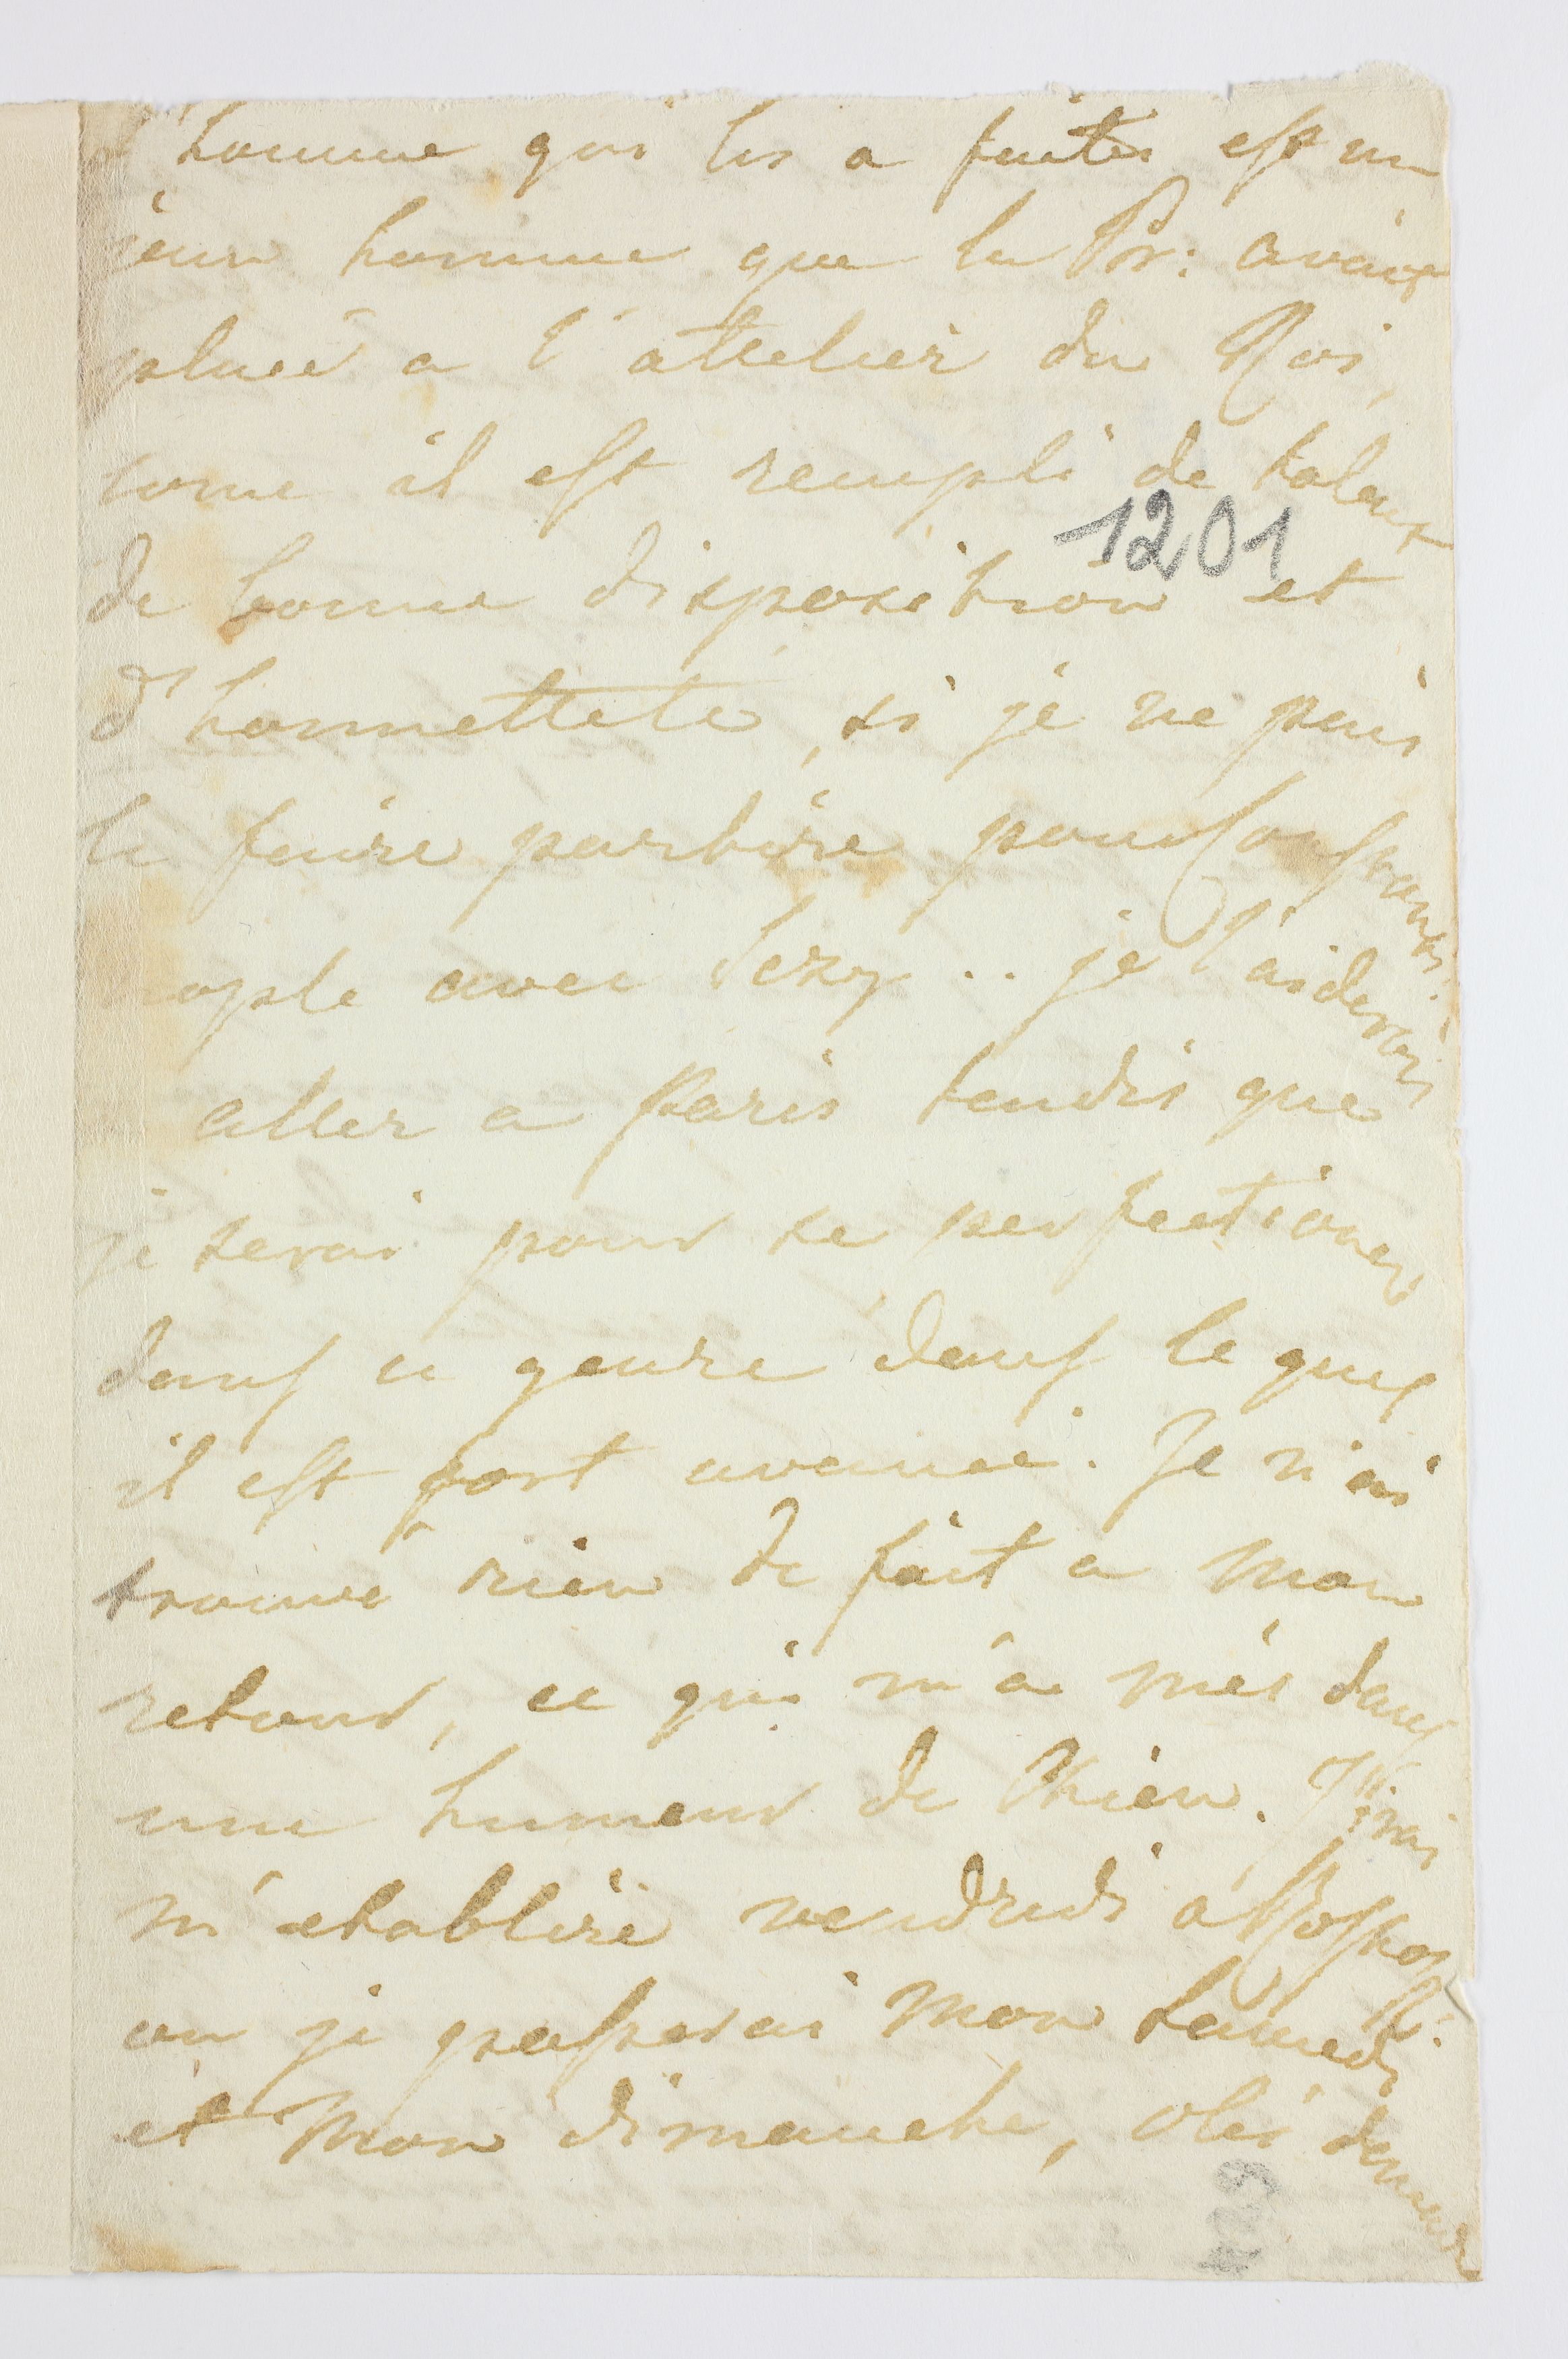 l'homme qui les a faites est un
jeune homme que la Pr: avait
placé a l'attelier du Roi,
come il est rempli de talent
1201
de bonne disposition et
d'honnetteté, si je ne puis
le faire partire pour Constanti:
nople avec .. je l'aiderai
aller a Paris tandis que
je serai pour se perfectioner
dans ce genre dans le quel
il est fort avancé. Je n'ai
trouvé rien de fait a mon
retour, ce qui m'a mis dans
une humeur de Chien. J'irai
m'etablire vendredi a
ou je passerai mon samedi
et mon dimanche, demeure